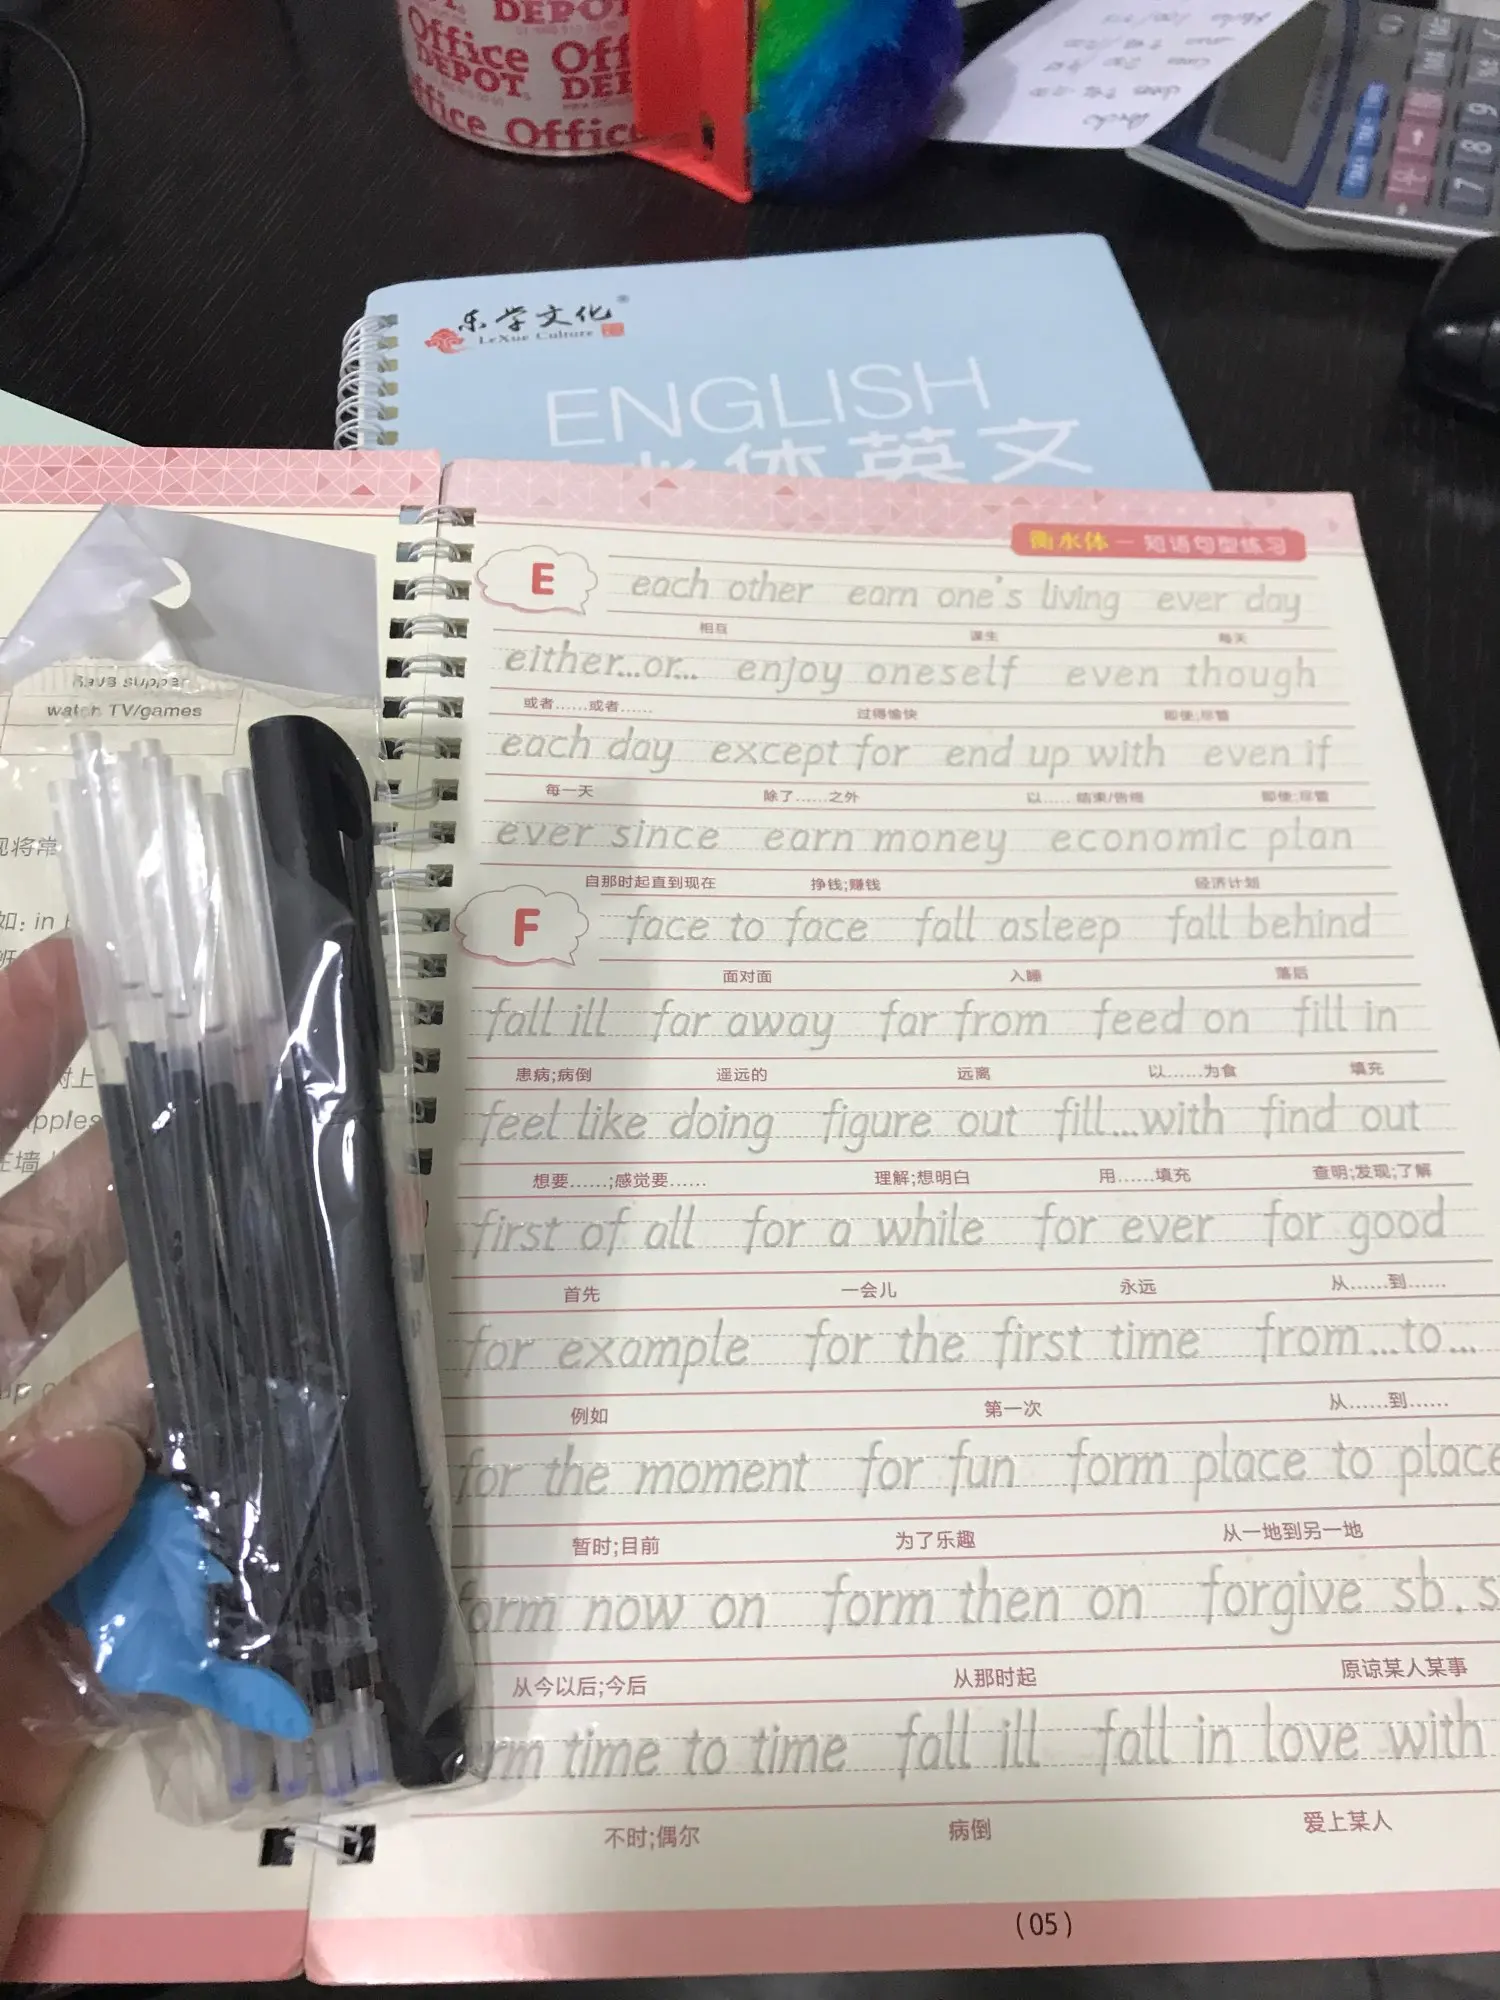 Office DEPOT
乐学文化®
LeXue Culture
ENGLISH
水体英文
衡水体 — 短语句型练习
E each other earn one's living ever day
相互 谋生 每天
either...or... enjoy oneself even though
或者......或者...... 过得愉快 即使;尽管
each day except for end up with even if
每一天 除了......之外 以......结束/告终 即使;尽管
ever since earn money economic plan
自那时起直到现在 挣钱;赚钱 经济计划
F face to face fall asleep fall behind
面对面 入睡 落后
fall ill far away far from feed on fill in
患病;病倒 遥远的 远离 以......为食 填充
feel like doing figure out fill...with find out
想要......;感觉要...... 理解;想明白 用......填充 查明;发现;了解
first of all for a while for ever for good
首先 一会儿 永远 从......到......
for example for the first time from...to...
例如 第一次 从......到......
for the moment for fun form place to place
暂时;目前 为了乐趣 从一地到另一地
form now on form then on forgive sb. s
从今以后;今后 从那时起 原谅某人某事
rm time to time fall ill fall in love with
不时;偶尔 病倒 爱上某人
(05)
have supper
watch TV/games
现将常
如: in
班
树上
apples
在墙上
up
7 8 9